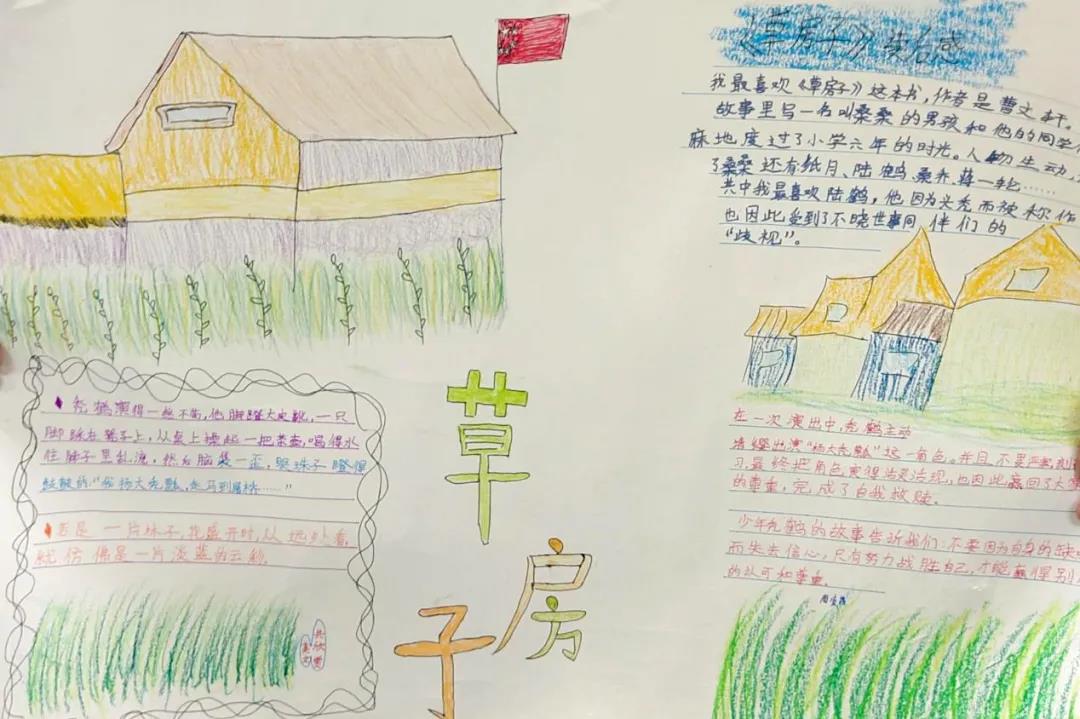 《草房子》读后感
我最喜欢《草房子》这本书，作者是曹文轩。
故事里写一名叫桑桑的男孩和他的同学
麻地度过了小学六年的时光。人物生动，
了桑桑还有纸月、陆鹤、桑乔、蒋一轮……
其中我最喜欢陆鹤，他因为头秃而被称作
也因此受到了不晓世事同伴们的
“歧视”。
在一次演出中，秃鹤主动
请缨出演“杨大秃瓢”这一角色。并且不畏严寒，
习最终把角色变得活灵活现，也因此赢回了大
的尊重，完成了自我救赎。
少年秃鹤的故事告诉我们：不要因为自身的缺
而失去信心，只有努力战胜自己，才能赢得别
的认可和尊重。
草
房
子
秃鹤演得一丝不苟，他脚蹬大皮靴，一只
脚踩在凳子上，从桌上操起一把茶壶，喝得水
往脖子里乱流，然后脑袋一歪，眼珠子瞪得
鼓鼓的“我杨大秃瓢，走马到屠桥……”
若是一片林子，花盛开时，从远处看，
就仿佛是一片淡蓝的云彩。